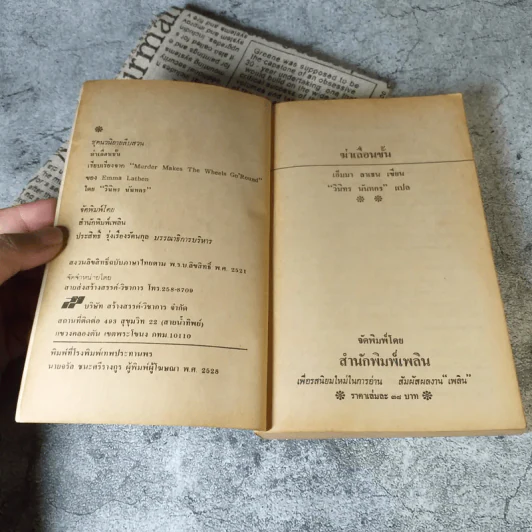 urmal
Greene was supposed to be
the capstone of an obsessive
20-year undertaking, one
❋
ชุดนวนิยายสืบสวน
ฆ่าเลือนชั้น
เรียบเรียงจาก "Murder Makes The Wheels Go'Round"
ของ Emma Lathen
โดย "วินิทร นันทกร"
จัดพิมพ์โดย
สำนักพิมพ์เพลิน
ประสิทธิ์ รุ่งเรืองรัตนกุล บรรณาธิการบริหาร
สงวนลิขสิทธิ์ฉบับภาษาไทยตาม พ.ร.บ.ลิขสิทธิ์ พ.ศ. 2521
จัดจำหน่ายโดย
สายส่งสร้างสรรค์-วิชาการ โทร.258-8709
บริษัท สร้างสรรค์-วิชาการ จำกัด
สถานที่ติดต่อ 493 สุขุมวิท 22 (สายน้ำทิพย์)
แขวงคลองตัน เขตพระโขนง กทม.10110
พิมพ์ที่โรงพิมพ์เทพประทานพร
นายจรัล ชนะศรีรางกูร ผู้พิมพ์ผู้โฆษณา พ.ศ. 2528
ฆ่าเลื่อนชั้น
เอ็มมา ลาเธน เขียน
"วินิทร นันทกร" แปล
❋ ❋
จัดพิมพ์โดย
สำนักพิมพ์เพลิน
เพื่อรสนิยมใหม่ในการอ่าน สัมผัสผลงาน "เพลิน"
❋ ราคาเล่มละ ๓๘ บาท ❋